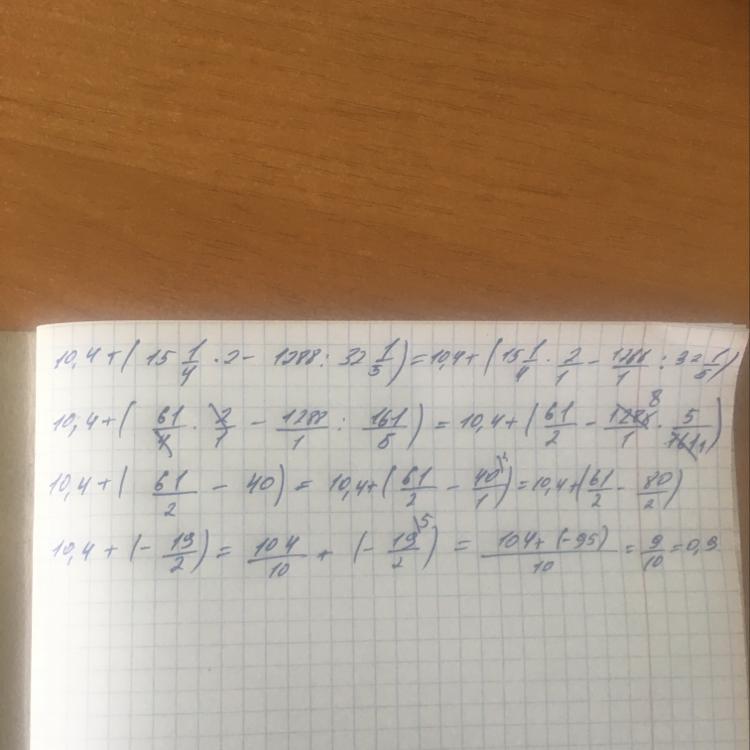 10,4 + ( 15 1/4 · 2 - 1288 : 32 1/5 ) = 10,4 + ( 15 1/4 · 2/1 - 1288/1 : 32 1/5 )
10,4 + ( 61/4 · 2/1 - 1288/1 : 161/5 ) = 10,4 + ( 61/2 - 1288/1 8 · 5/161 1 )
10,4 + ( 61/2 - 40 ) = 10,4 + ( 61/2 - 40/1 ) = 10,4 + ( 61/2 - 80/2 )
10,4 + ( - 19/2 ) = 104/10 + ( - 19/2 5 ) = 104 + (-95)/10 = 9/10 = 0,9